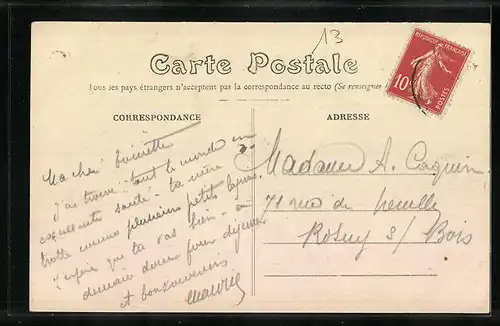 13
Carte Postale
Tous les pays étrangers n'acceptent pas la correspondance au recto (Se renseigner
REPUBLIQUE FRANÇAISE
10
POSTES
CORRESPONDANCE
ADRESSE
Ma chère
j'ai trouvé tout le monde en
excellente santé - ta mère
trotte comme plusieurs petits lapins.
j'espère que tu vas bien - à
demain donc pour déjeuner
et bons souvenirs
Maurice
Madame A. Coquin
71 rue de
Rosny s/ Bois